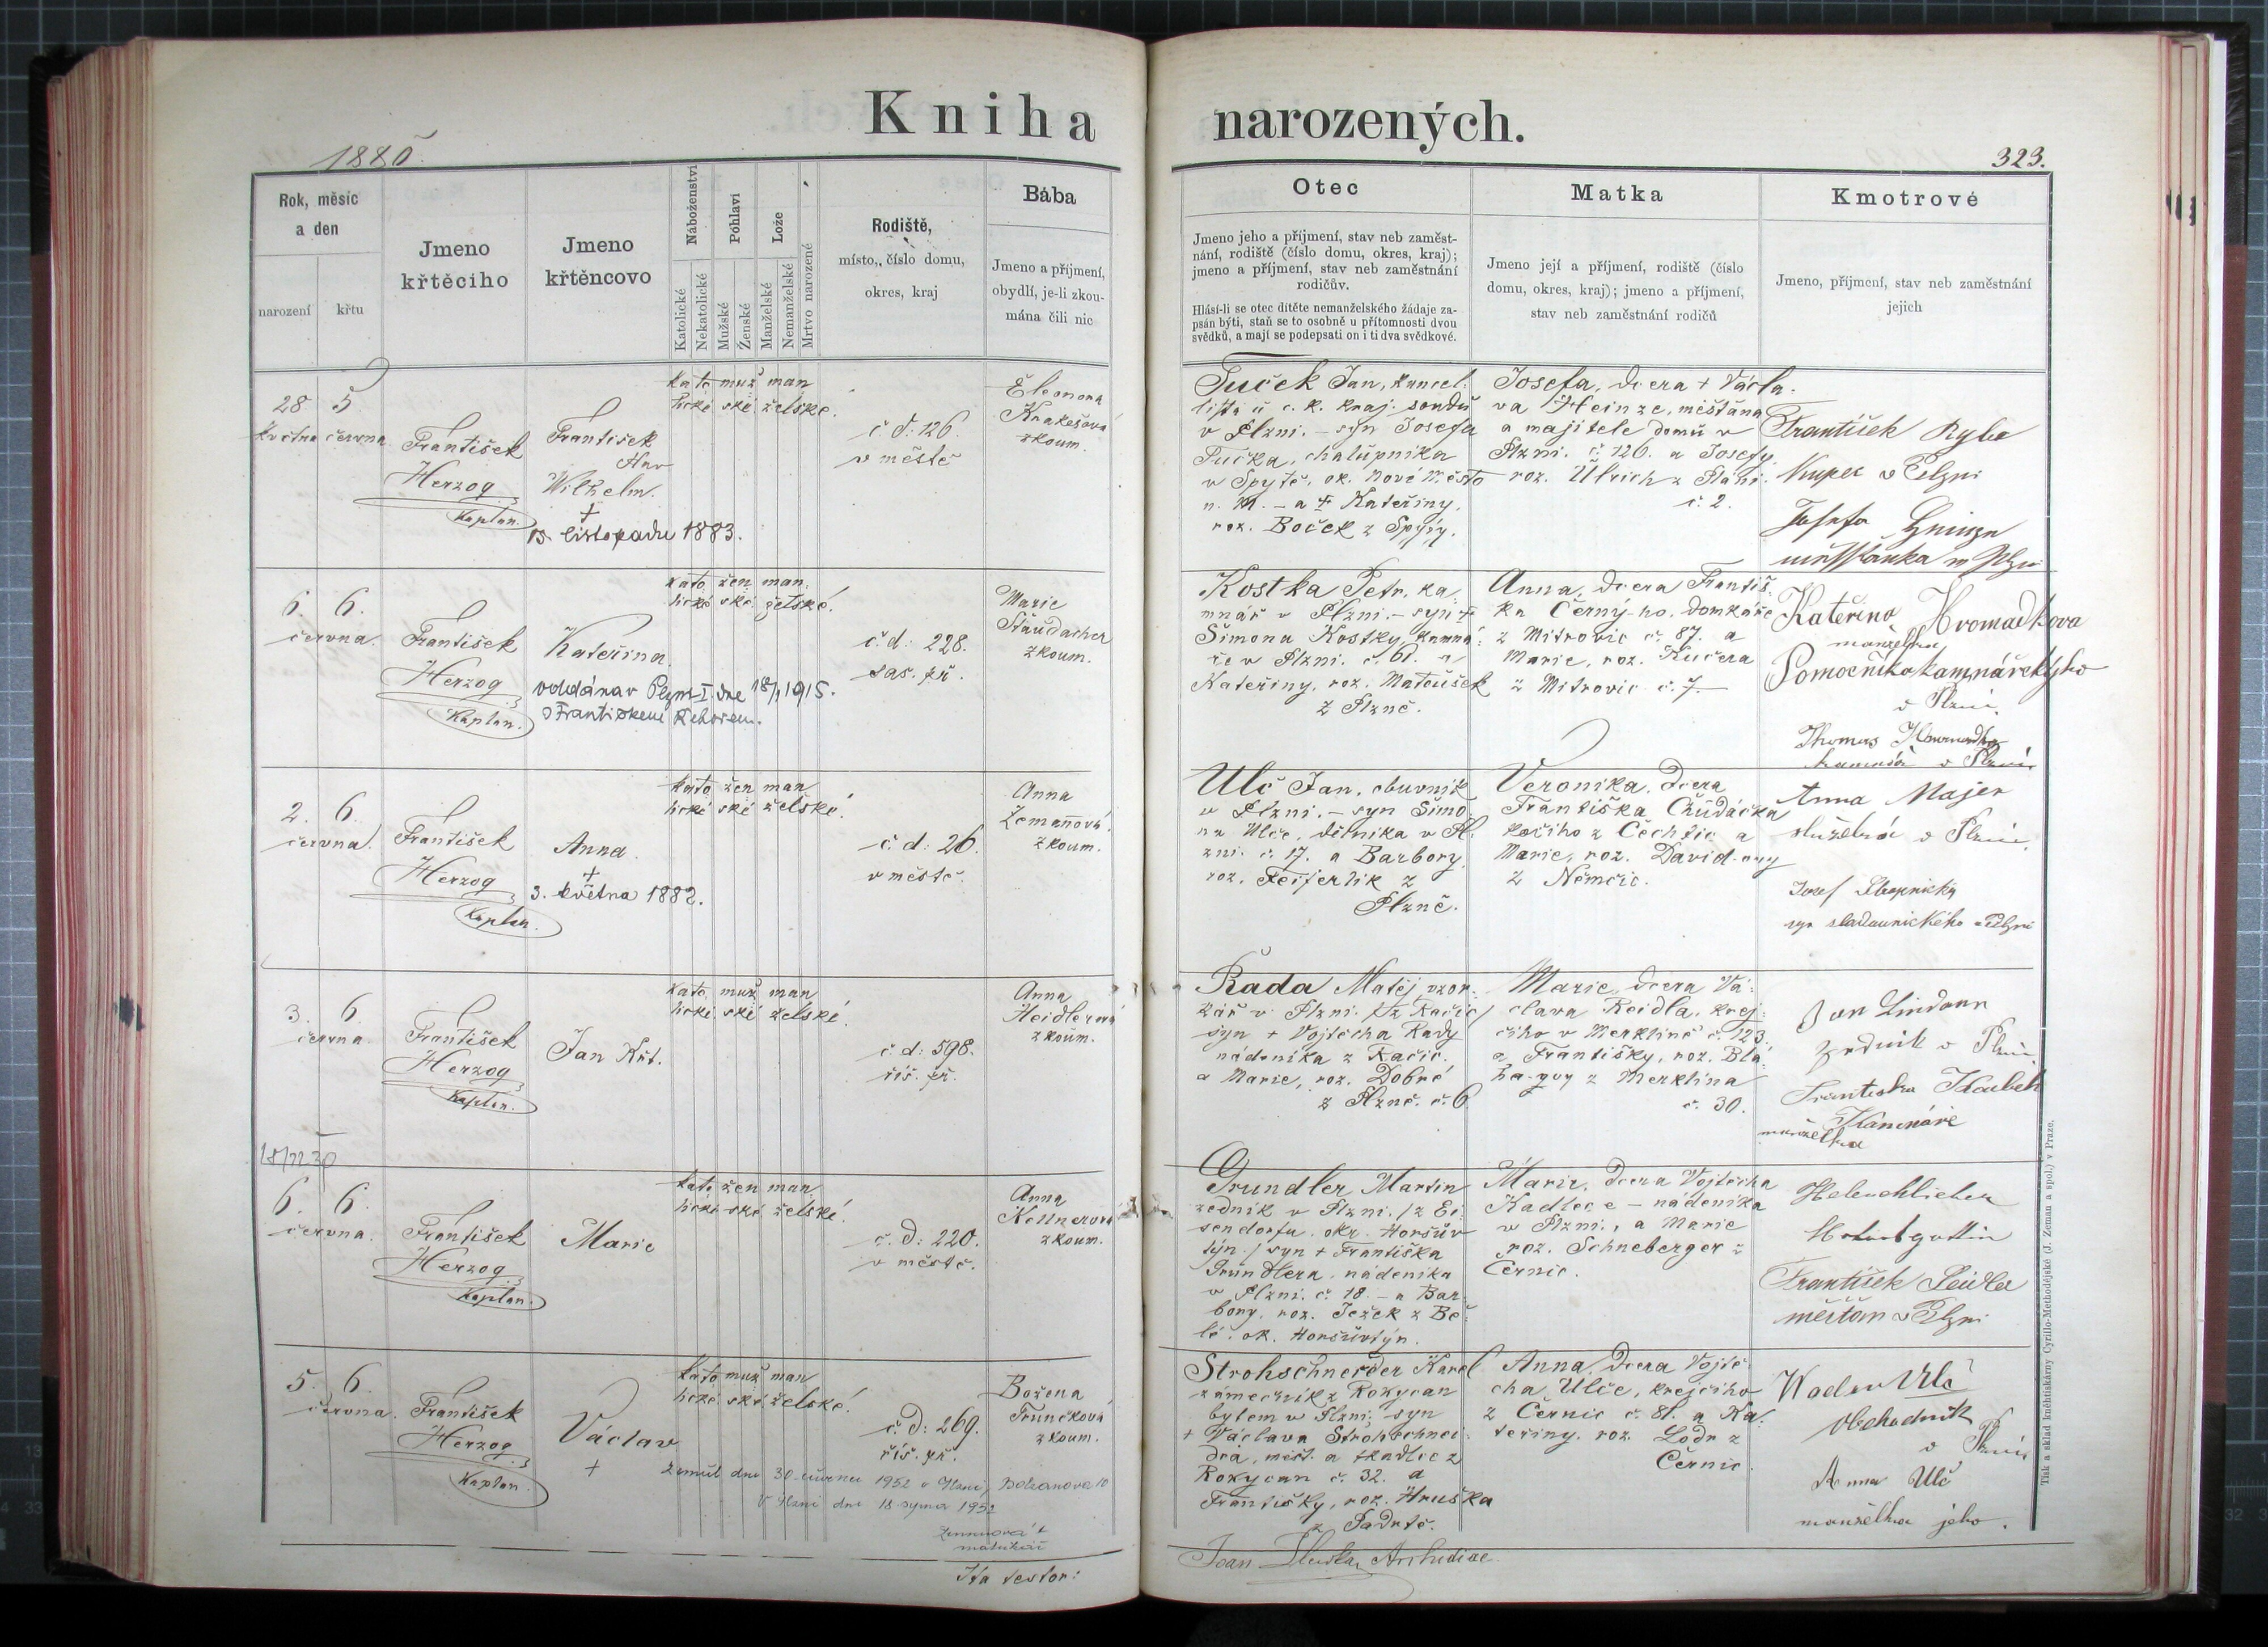 Kniha narozených.
1880.
323.
Rok, měsíc
a den
narození
křtu
Jmeno
křtěcího
Jmeno
křtěncovo
Náboženství
Katolické
Nekatolické
Pohlaví
Mužské
Ženské
Lože
Manželské
Nemanželské
Mrtvo narozené
Rodiště,
místo, číslo domu,
okres, kraj
Bába
Jmeno a příjmení,
obydlí, je-li zkou-
mána čili nic
Otec
Jmeno jeho a příjmení, stav neb zaměst-
nání, rodiště (číslo domu, okres, kraj);
jmeno a příjmení, stav neb zaměstnání
rodičův.
Hlásí-li se otec dítěte nemanželského žádaje za-
psán býti, staň se to osobně u přítomnosti dvou
svědků, a mají se podepsati on i ti dva svědkové.
Matka
Jmeno její a příjmení, rodiště (číslo
domu, okres, kraj); jmeno a příjmení,
stav neb zaměstnání rodičů
Kmotrové
Jmeno, příjmení, stav neb zaměstnání
jejich
28 5
května června
František
Herzog
Kaplan.
František
Wilhelm.
+
listopadu 1883.
kato muž man
lické ské želské.
č d: 126.
v městě
Eleonora
zkoum.
Tuček Jan, kancel.
listа u c. k. kraj. soudu
v Plzni. – syn Josefa
Tučka, chalupníka
v Spytě, ok. Nové Město
n. M. – a + Kateřiny,
roz. Boček z
Josefa, dcera + Václa-
va Heinze, měšťana
a majitele domu v
Plzni. č. 126. a Josefy
roz. Ulrich z Pláni.
č. 2.
František Ryba
Kupec v Plzni
Josefa
6. 6.
června.
František
Herzog
Kaplan.
Kateřina.
oddána v Plzni I. dne 18/1 1915.
s Františkem Řehořem.
kato žen man
lické ské želské.
č. d: 228.
sas. př.
Marie
Staudacher
zkoum.
Kostka Petr, ka-
mnář v Plzni. – syn +
Šimona Kostky, kamná-
ře v Plzni. č. 61. a
Kateřiny, roz. Matoušek
z Plzně.
Anna, dcera Františ-
ka Černy-ho, domkáře
z Mitrovic č. 87. a
Marie, roz. Kučera
z Mitrovic č. 7.
Kateřina Hromadkova
manželka
Pomocnika kamnářskyho
v Plzni.
Thomas
kamnář v Plzni
2. 6.
června.
František
Herzog
Kaplan.
Anna.
+
3. května 1882.
kato žen man
lické ské želské.
č. d: 26.
v městě.
Anna
Zemanová.
zkoum.
Ulč Jan, obuvník
v Plzni. – syn Šimo-
na Ulče, dělníka v Pl-
zni. č. 17. a Barbory,
roz. Feiferlik z
Plzně.
Veronika, dcera
Františka Chudáčka
kočího z Čechtic a
Marie, roz. David-ovy
z Němčic.
Anna Majer
služebná v Plzni.
Josef
syn sladovnického v Plzni
3. 6
června.
František
Herzog
Kaplan.
Jan Křt.
kato muž man
lické ské želské.
č d: 598.
říš. př.
Anna
Heidlerová
zkoum.
Řada Matěj,
v Plzni.
syn + Vojtěcha Řady
nádeníka z
a Marie, roz. Dobré
z Plzně. č. 6
Marie, dcera Vá-
clava Reidla, krej-
čího v Merklíně č. 123.
a Františky, roz. Blá-
ha-ovy z Merklína
č. 30.
Jan Lindann
v Plzni
Frantiska
Kamnáře
manželka
6. 6.
června.
František
Herzog
Kaplan.
Marie
kato žen man
lické ské želské.
č. d: 220.
v městě.
Anna
zkoum.
Grundler Martin
zedník v Plzni. /z Ei-
sendorfu. okr. Horšův
týn./ syn + Františka
Grundlera, nádeníka
v Plzni. č. 18. – a Bar-
bory, roz. Ježek z Bě-
lé. ok. Horšůvtýn.
Marie, dcera Vojtěcha
Kadlece – nádeníka
v Plzni., a Marie
roz. Schneberger z
Černic.
František Seidler
měšťan v Plzni
5. 6.
června.
František
Herzog
Kaplan.
Václav
+
kato muž man
lické ské želské.
č. d: 269.
říš. př.
Božena
Trunčková
zkoum.
Zemřel dne 30. 1952 v Plzni, Bolzanova 10
V Plzni dne 18. srpna 1952
matrikář
Strohschneider Karel
zámečník z Rokycan
bytem v Plzni, syn
+ Václava Strohschnei-
dra, měšť. a tkadlce z
Rokycan č. 32. a
Františky, roz. Hruška
z Padrtě.
Anna, dcera Vojtě-
cha Ulče, krejčího
z Černic č. 81. a Ka-
teřiny, roz. Lodr z
Černic.
Obchodník
v Plzni
Anna Ulč
manželka jeho.
Ita testor:
Joan Archidiac.
Tisk a sklad kněhtiskárny Cyrillo-Methodějské (J. Zeman a spol.) v Praze.